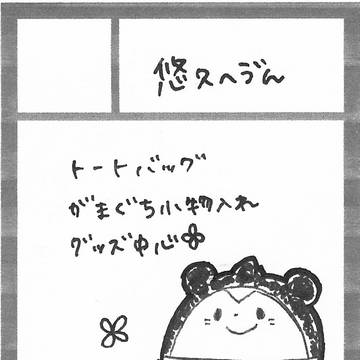 悠久へづん
トートバッグ
がまぐち小物入れ
グッズ中心